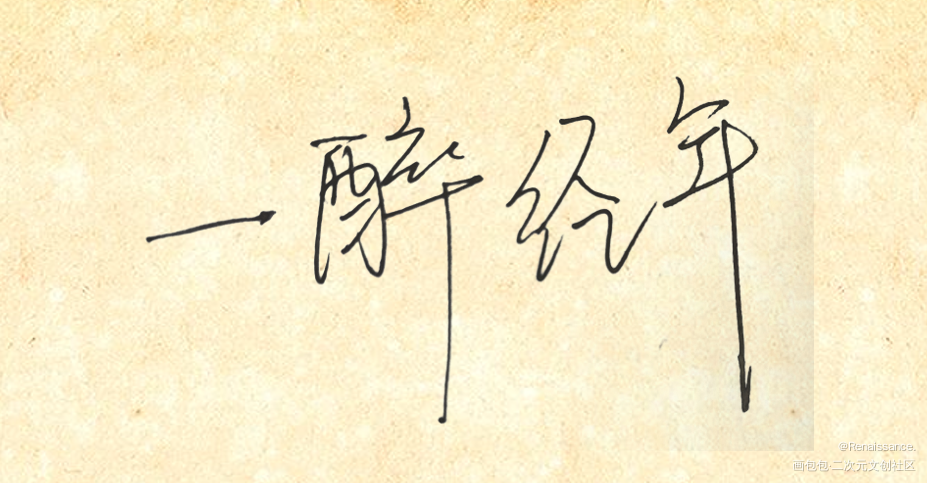 一醉经年
@Renaissance.
画包包·二次元文创社区